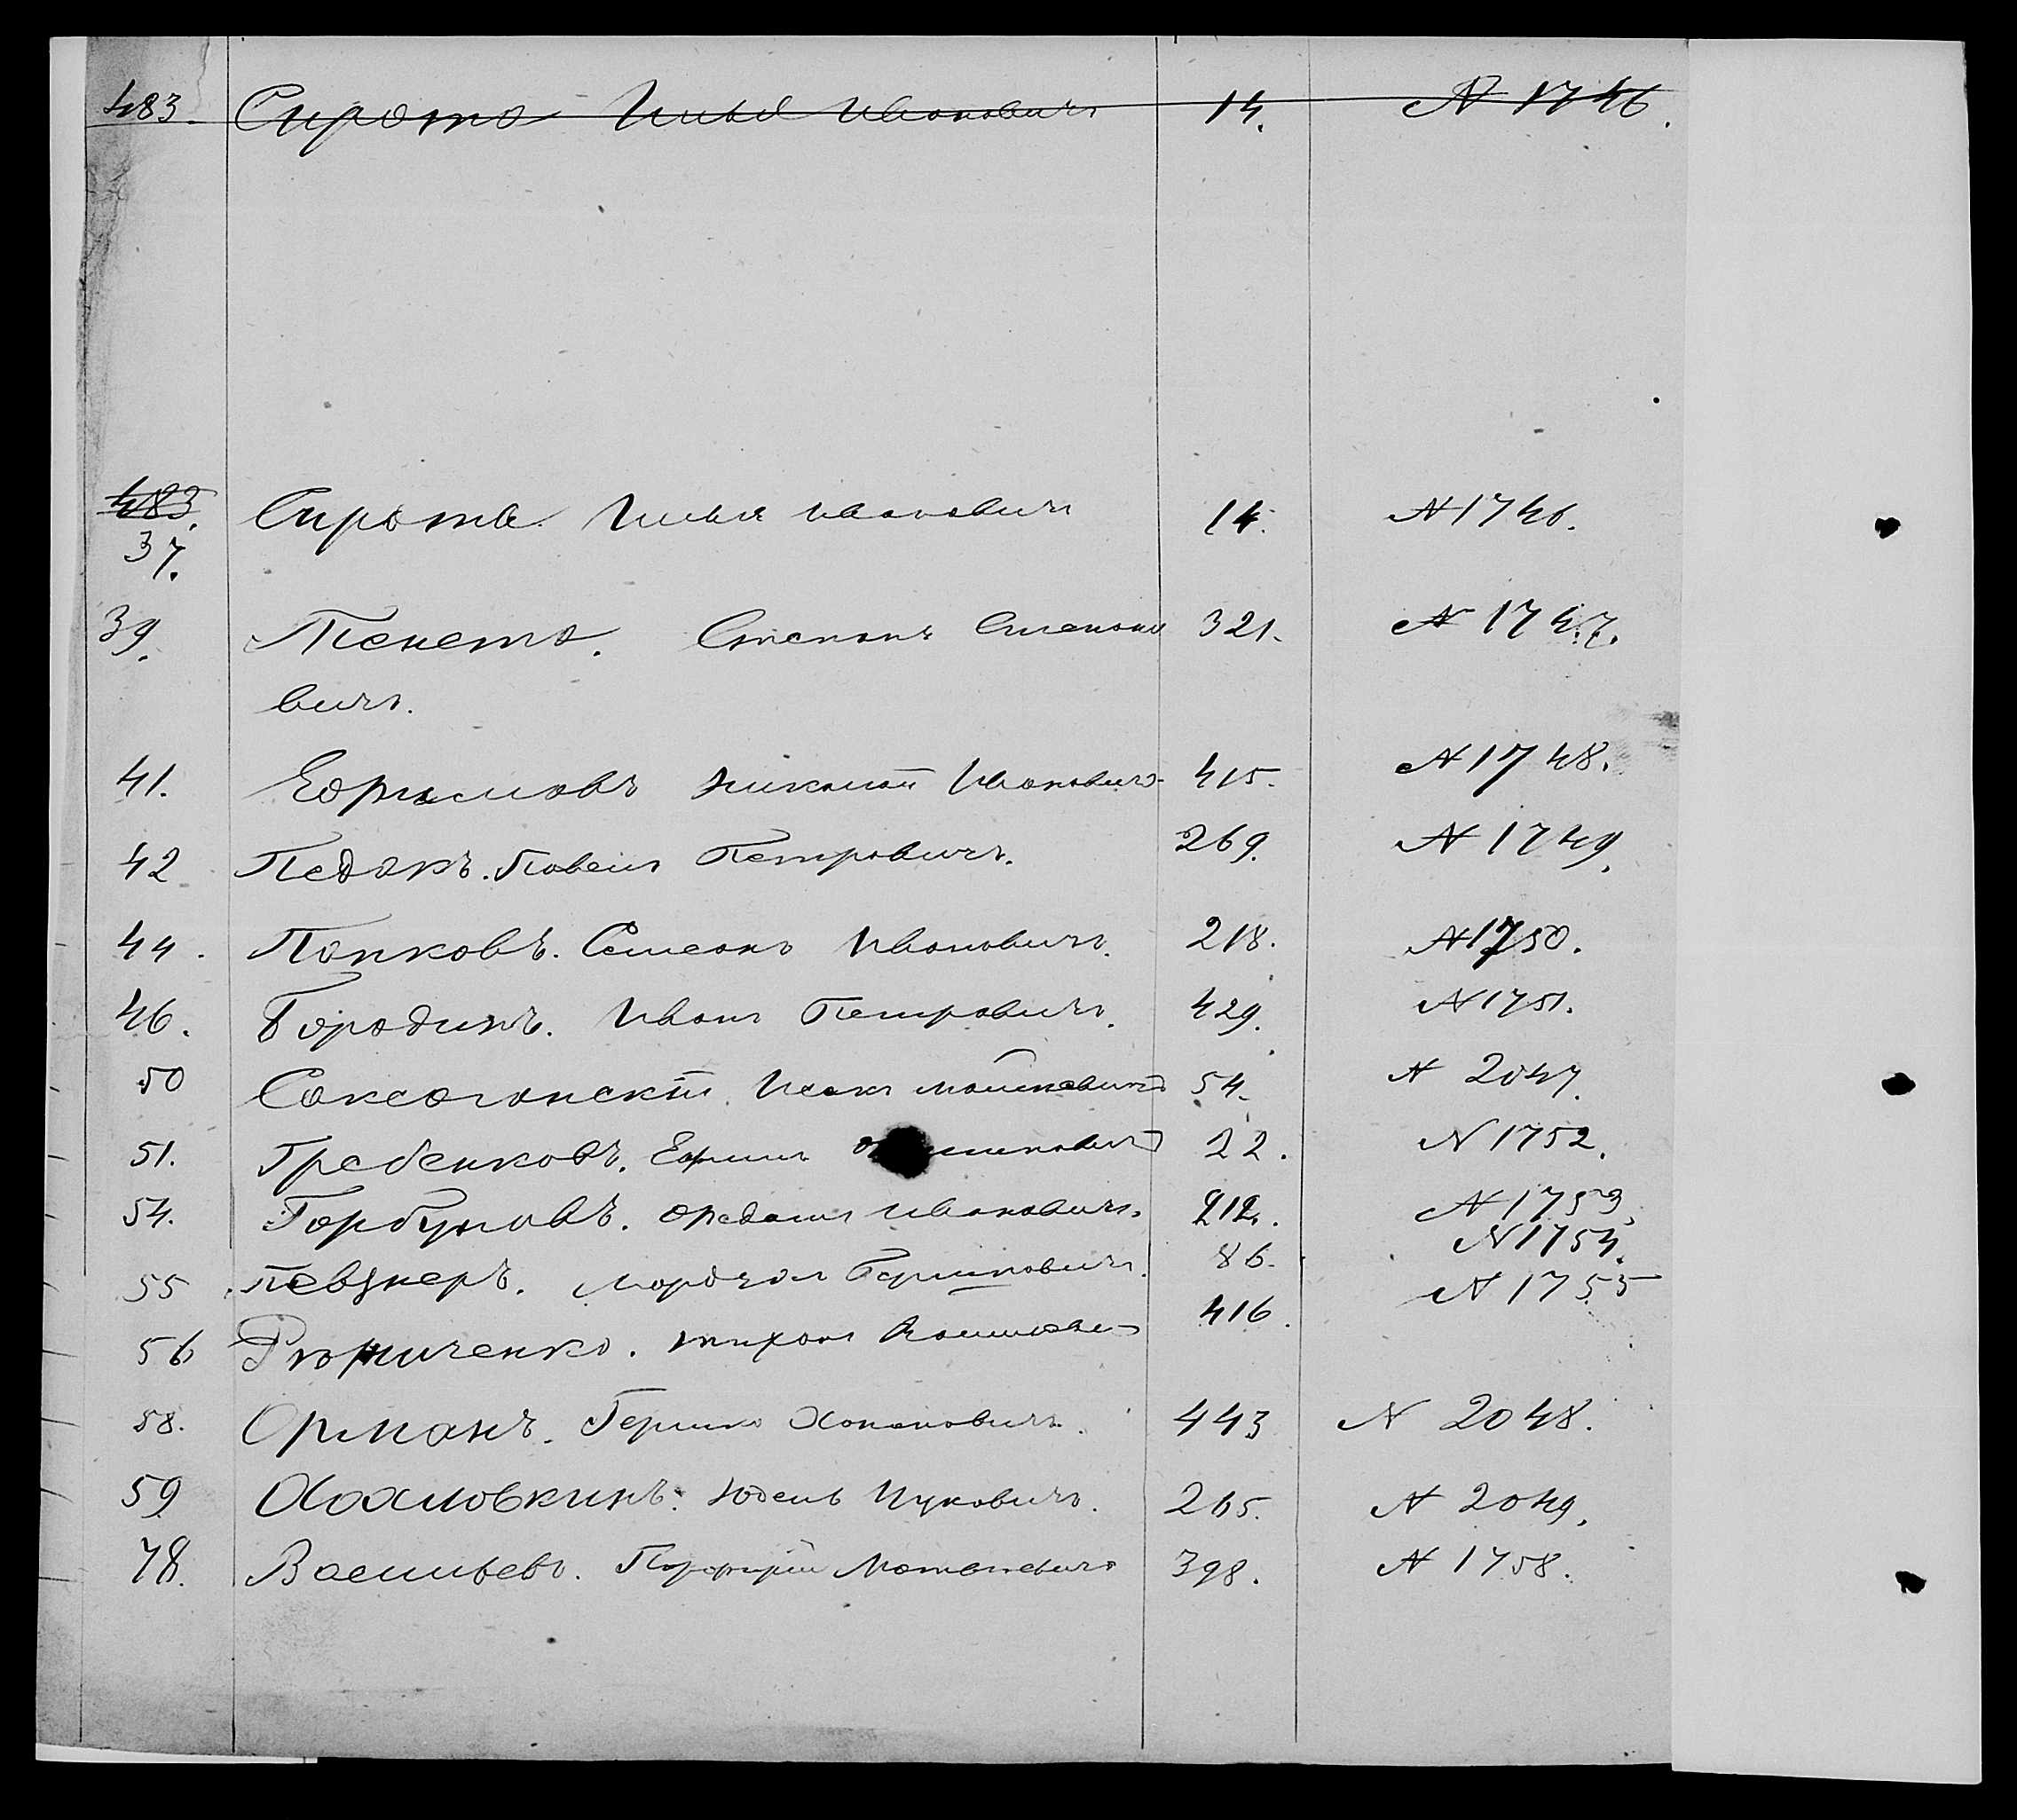 483. Сирота Илья Ивановичъ 14. N 1746.
483. Сирота Илья Ивановичъ 14. N 1746.
37.
39. Тенета. Степанъ Степано 321. N 1747.
вичъ.
41. Ефимовъ Николай Ивановичъ 415. N 1748.
42 Педакъ. Павелъ Петровичъ. 269. N 1749.
44. Папковъ. Семенъ Ивановичъ. 218. N 1750.
46. Бородинъ. Иванъ Петровичъ. 429. N 1751.
50 Саксаганскій Исакъ Мошковичъ 54. N 2047.
51. Гребенковъ. Ефимъ 22. N 1752.
54. Горбуновъ. Ивановичъ. 212. N 1753.
55 Певзнеръ. Мордхай Гершковичъ. 86. N 1754.
56 Тихонъ 416. N 1755
58. Орманъ. Гершко Хононовичъ. 443 N 2048.
59 Хаамовкинъ. Юдель Ицковичъ. 265. N 2049.
78. Васильевъ. Порфирій Матвеевичъ 398. N 1758.